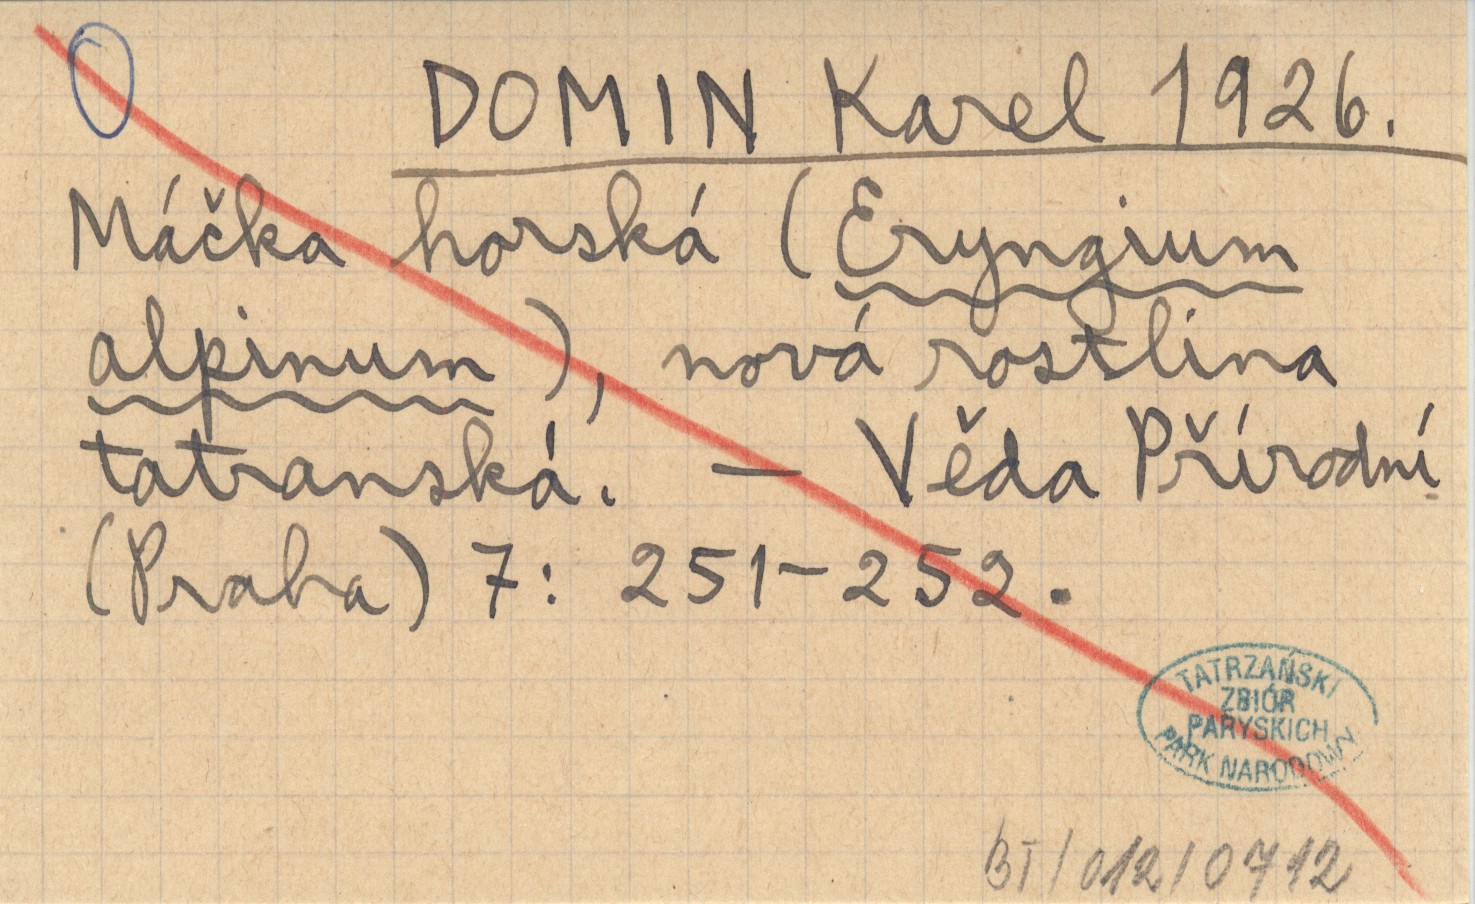 DOMIN Karel 1926.
Máčka horská (Eryngium
alpinum), nová rostlina
tatranská. — Věda Přírodní
(Praha) 7: 251-252.
TATRZAŃSKI
ZBIÓR
PARYSKICH
PARK NARODOWY
BT/012/0712